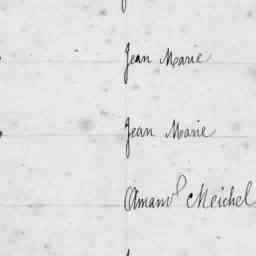 Jean Marie
Jean Marie
Amand Meichel